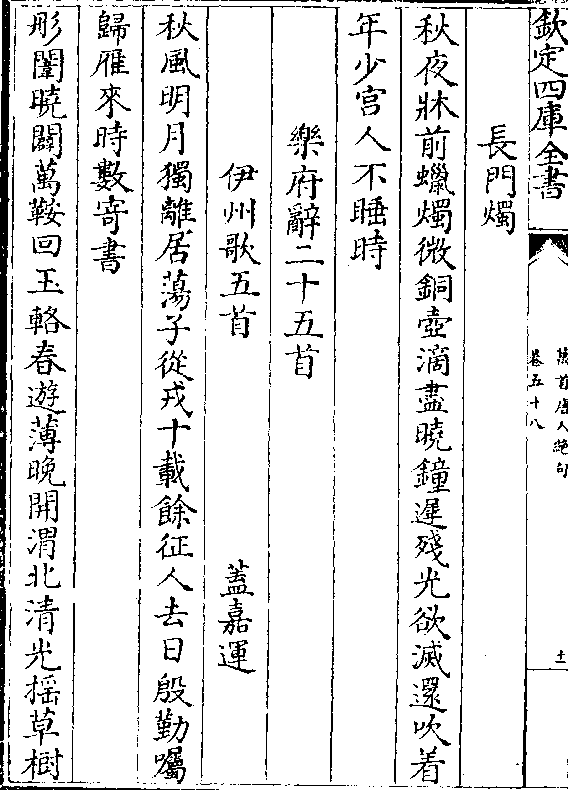 欽定四庫全書
萬首唐人絶句
卷五十八
十一
長門燭
秋夜牀前蠟燭微銅壺滴盡曉鐘遲殘光欲滅還吹着
年少宫人不睡時
樂府辭二十五首
伊州歌五首
蓋嘉運
秋風明月獨離居蕩子從戎十載餘征人去日殷勤囑
歸雁來時數寄書
彤闈曉闢萬鞍回玉輅春遊薄晚開渭北清光摇草樹